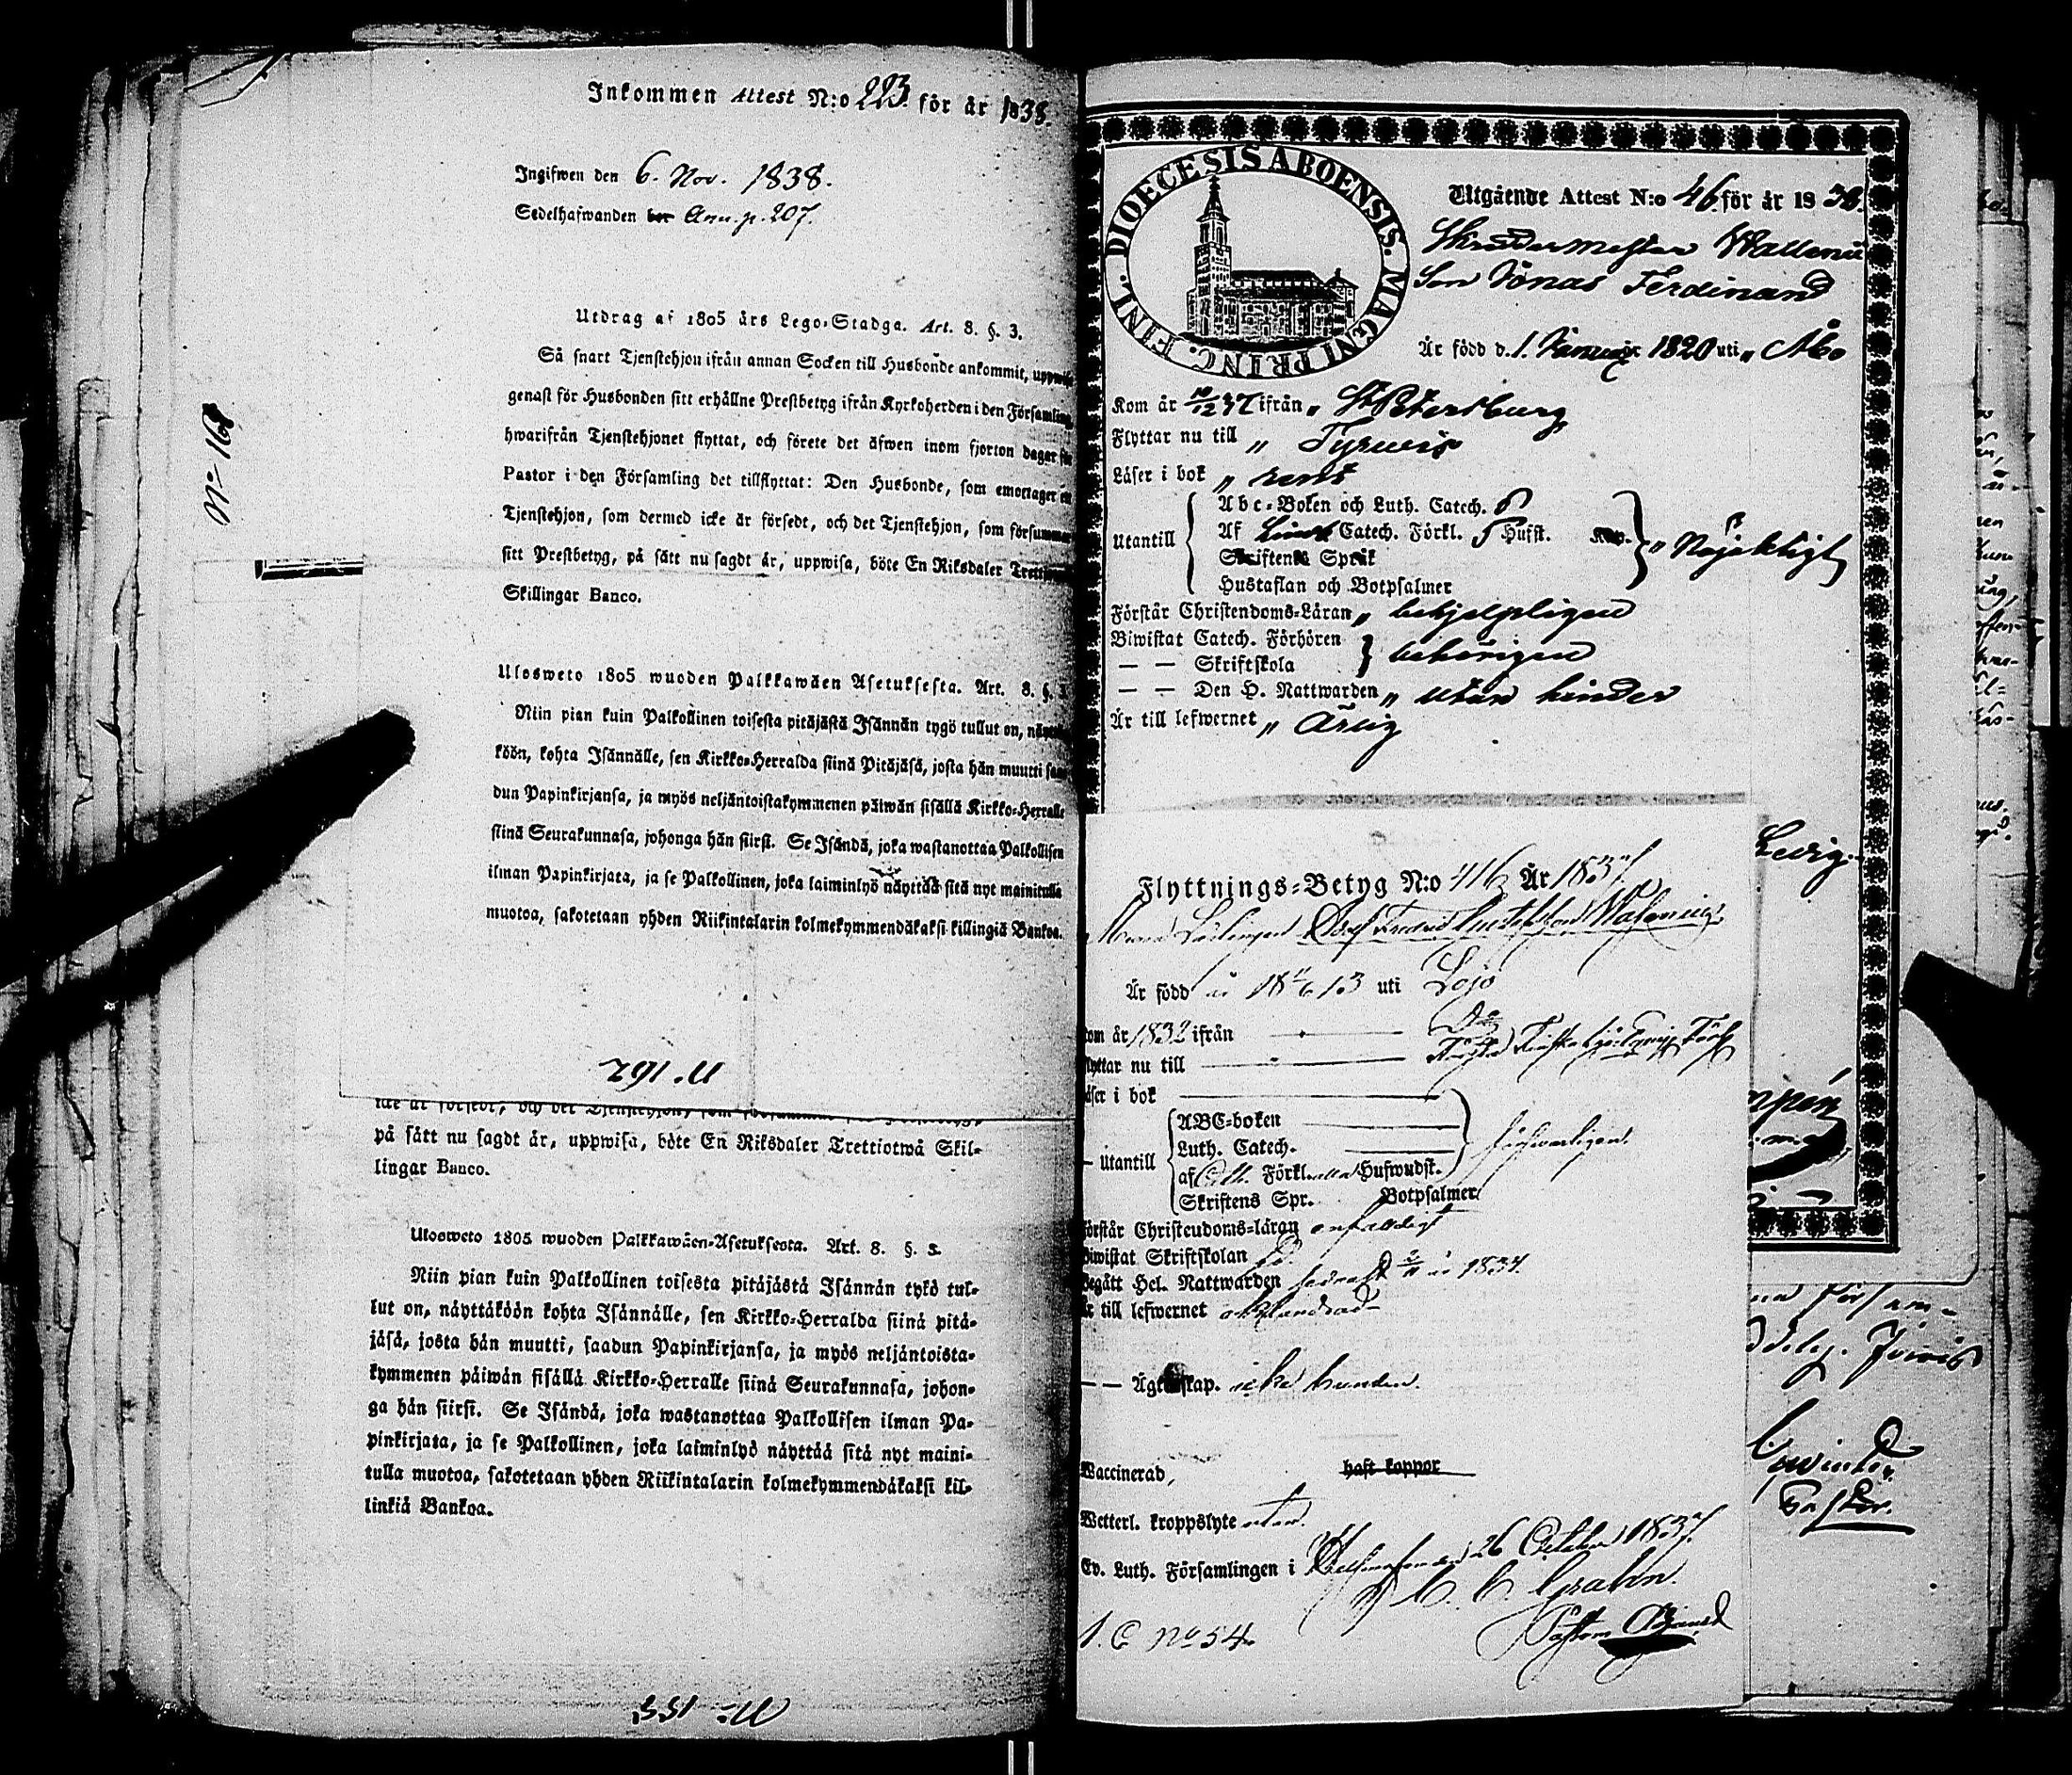 Inkommen Attest N:o 223. för år 1838.
Ingifwen den 6. Nov. 1838.
Sedelhafwanden bor Ann. p. 207.
Utdrag af 1805 års Lego-Stadga. Art. 8. §. 3.
Så snart Tjenstehjon ifrån annan Socken till Husbonde ankommit,
genast för Husbonden sitt erhållne Prestbetyg ifrån Kyrkoherden i den Församling
hwarifrån Tjenstehjonet flyttat, och förete det äfwen inom fjorton dagar för
Pastor i den Församling det tillflyttat: Den Husbonde, som emottager
Tjenstehjon, som dermed icke är försedt, och det Tjenstehjon, som försummar
sitt Prestbetyg, på sätt nu sagdt är, uppwisa, böte En Riksdaler
Skillingar Banco.
N:o 168
Ulosweto 1805 wuoden Palkkawäen Asetuksesta. Art. 8. §. 3
Niin pian kuin Palkollinen toisesta pitäjästä Isännän tygö tullut on,
köön, kohta Isännälle, sen Kirkko-Herralda siinä Pitäjäsä, josta hän muutti
dun Papinkirjansa, ja myös neljäntoistakymmenen päiwän sisällä Kirkko-Herralle
siinä Seurakunnasa, johonga hän siirsi. Se Isändä, joka wastanottaa Palkollisen
ilman Papinkirjata, ja se Palkollinen, joka laiminlyö näyttää sitä nyt mainitulla
muotoa, sakotetaan yhden Riikintalarin kolmekymmendäkaksi killingiä Bankoa.
N. 162
på sätt nu sagdt är, uppwisa, böte En Riksdaler Trettiotwå Skil-
lingar Banco.
Ulosweto 1805 wuoden Palkkawäen-Asetuksesta. Art. 8. §. 3.
Niin pian kuin Palkollinen toisesta pitäjästä Isännän tykö tul-
lut on, näyttäköön kohta Isännälle, sen Kirkko-Herralda siinä pitä-
jäsä, josta hän muutti, saadun Papinkirjansa, ja myös neljäntoista-
kymmenen päiwän sisällä Kirkko-Herralle siinä Seurakunnasa, johon-
ga hän siirsi. Se Isändä, joka wastanottaa Palkollisen ilman Pa-
pinkirjata, ja se Palkollinen, joka laiminlyö näyttää sitä nyt maini-
tulla muotoa, sakotetaan yhden Riikintalarin kolmekymmendäkaksi kil-
linkiä Bankoa.
N. 155
DIOECESIS ABOENSIS. MAGNI PRINC. FINL.
Utgående Attest N:o 46. för år 1838.
Skräddarmästar Wallenii
Son Jonas Ferdinand
Är född d. 1. Januarii 1820 uti Åbo
Kom år 10/12 37 ifrån St Petersburg
Flyttar nu till Tyrwis
Läser i bok rent
Utantill
Abc-Boken och Luth. Catech.
Af Catech. Förkl. 5 Hufst.
Skriftens Språk
Hustaflan och Botpsalmer
Nöjaktigt
Förstår Christendoms-Läran behjelpligen
Biwistat Catech. Förhören
— — Skriftskola
behörigen
— — Den H. Nattwarden utan hinder
Är till lefwernet Ärlig
Ledig.
Flyttnings-Betyg N:o 416 År 1837
Är född år 18 11/6 13 uti Lojo
Kom år 1832 ifrån Do
Flyttar nu till
Läser i bok
Utantill
ABC-boken
Luth. Catech.
af Förkl. Hufwudst.
Skriftens Spr. Botpsalmer
försvarligen.
Förstår Christendoms-läran enfaldigt
Biwistat Skriftskolan
Begått Hel. Nattwarden år 1834.
Är till lefwernet oklandrad
— — Ägtenskap. icke bunden.
Waccinerad, haft koppor
Wetterl. kroppslyte utan.
Ev. Luth. Församlingen i Helsingfors den 26 October 1837.
C. C. Grahn.
N:o 54.
Pastor.